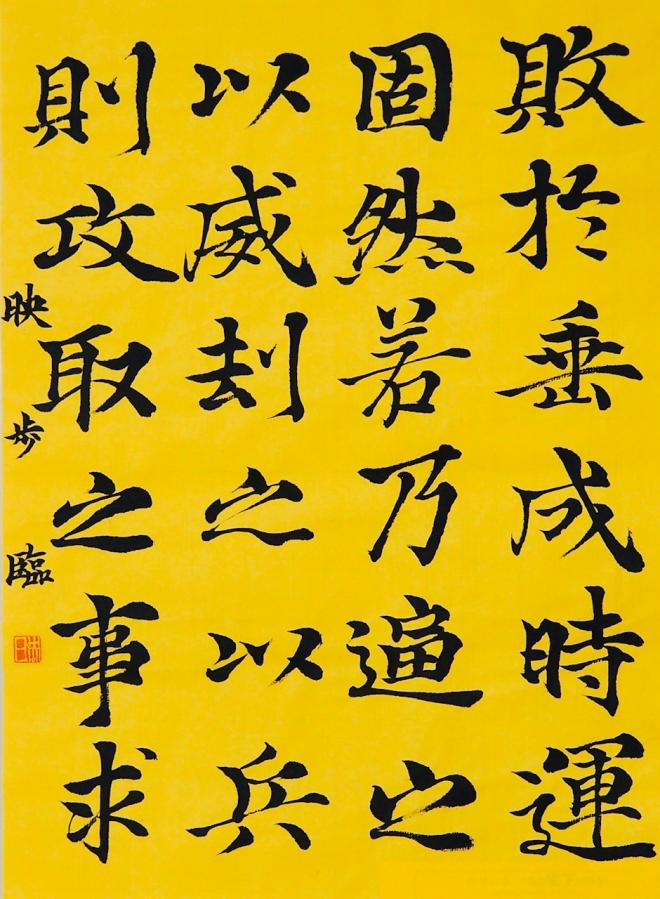 敗於垂成時運
固然若乃逼之
以威刦之以兵
則攻取之事求
映步臨